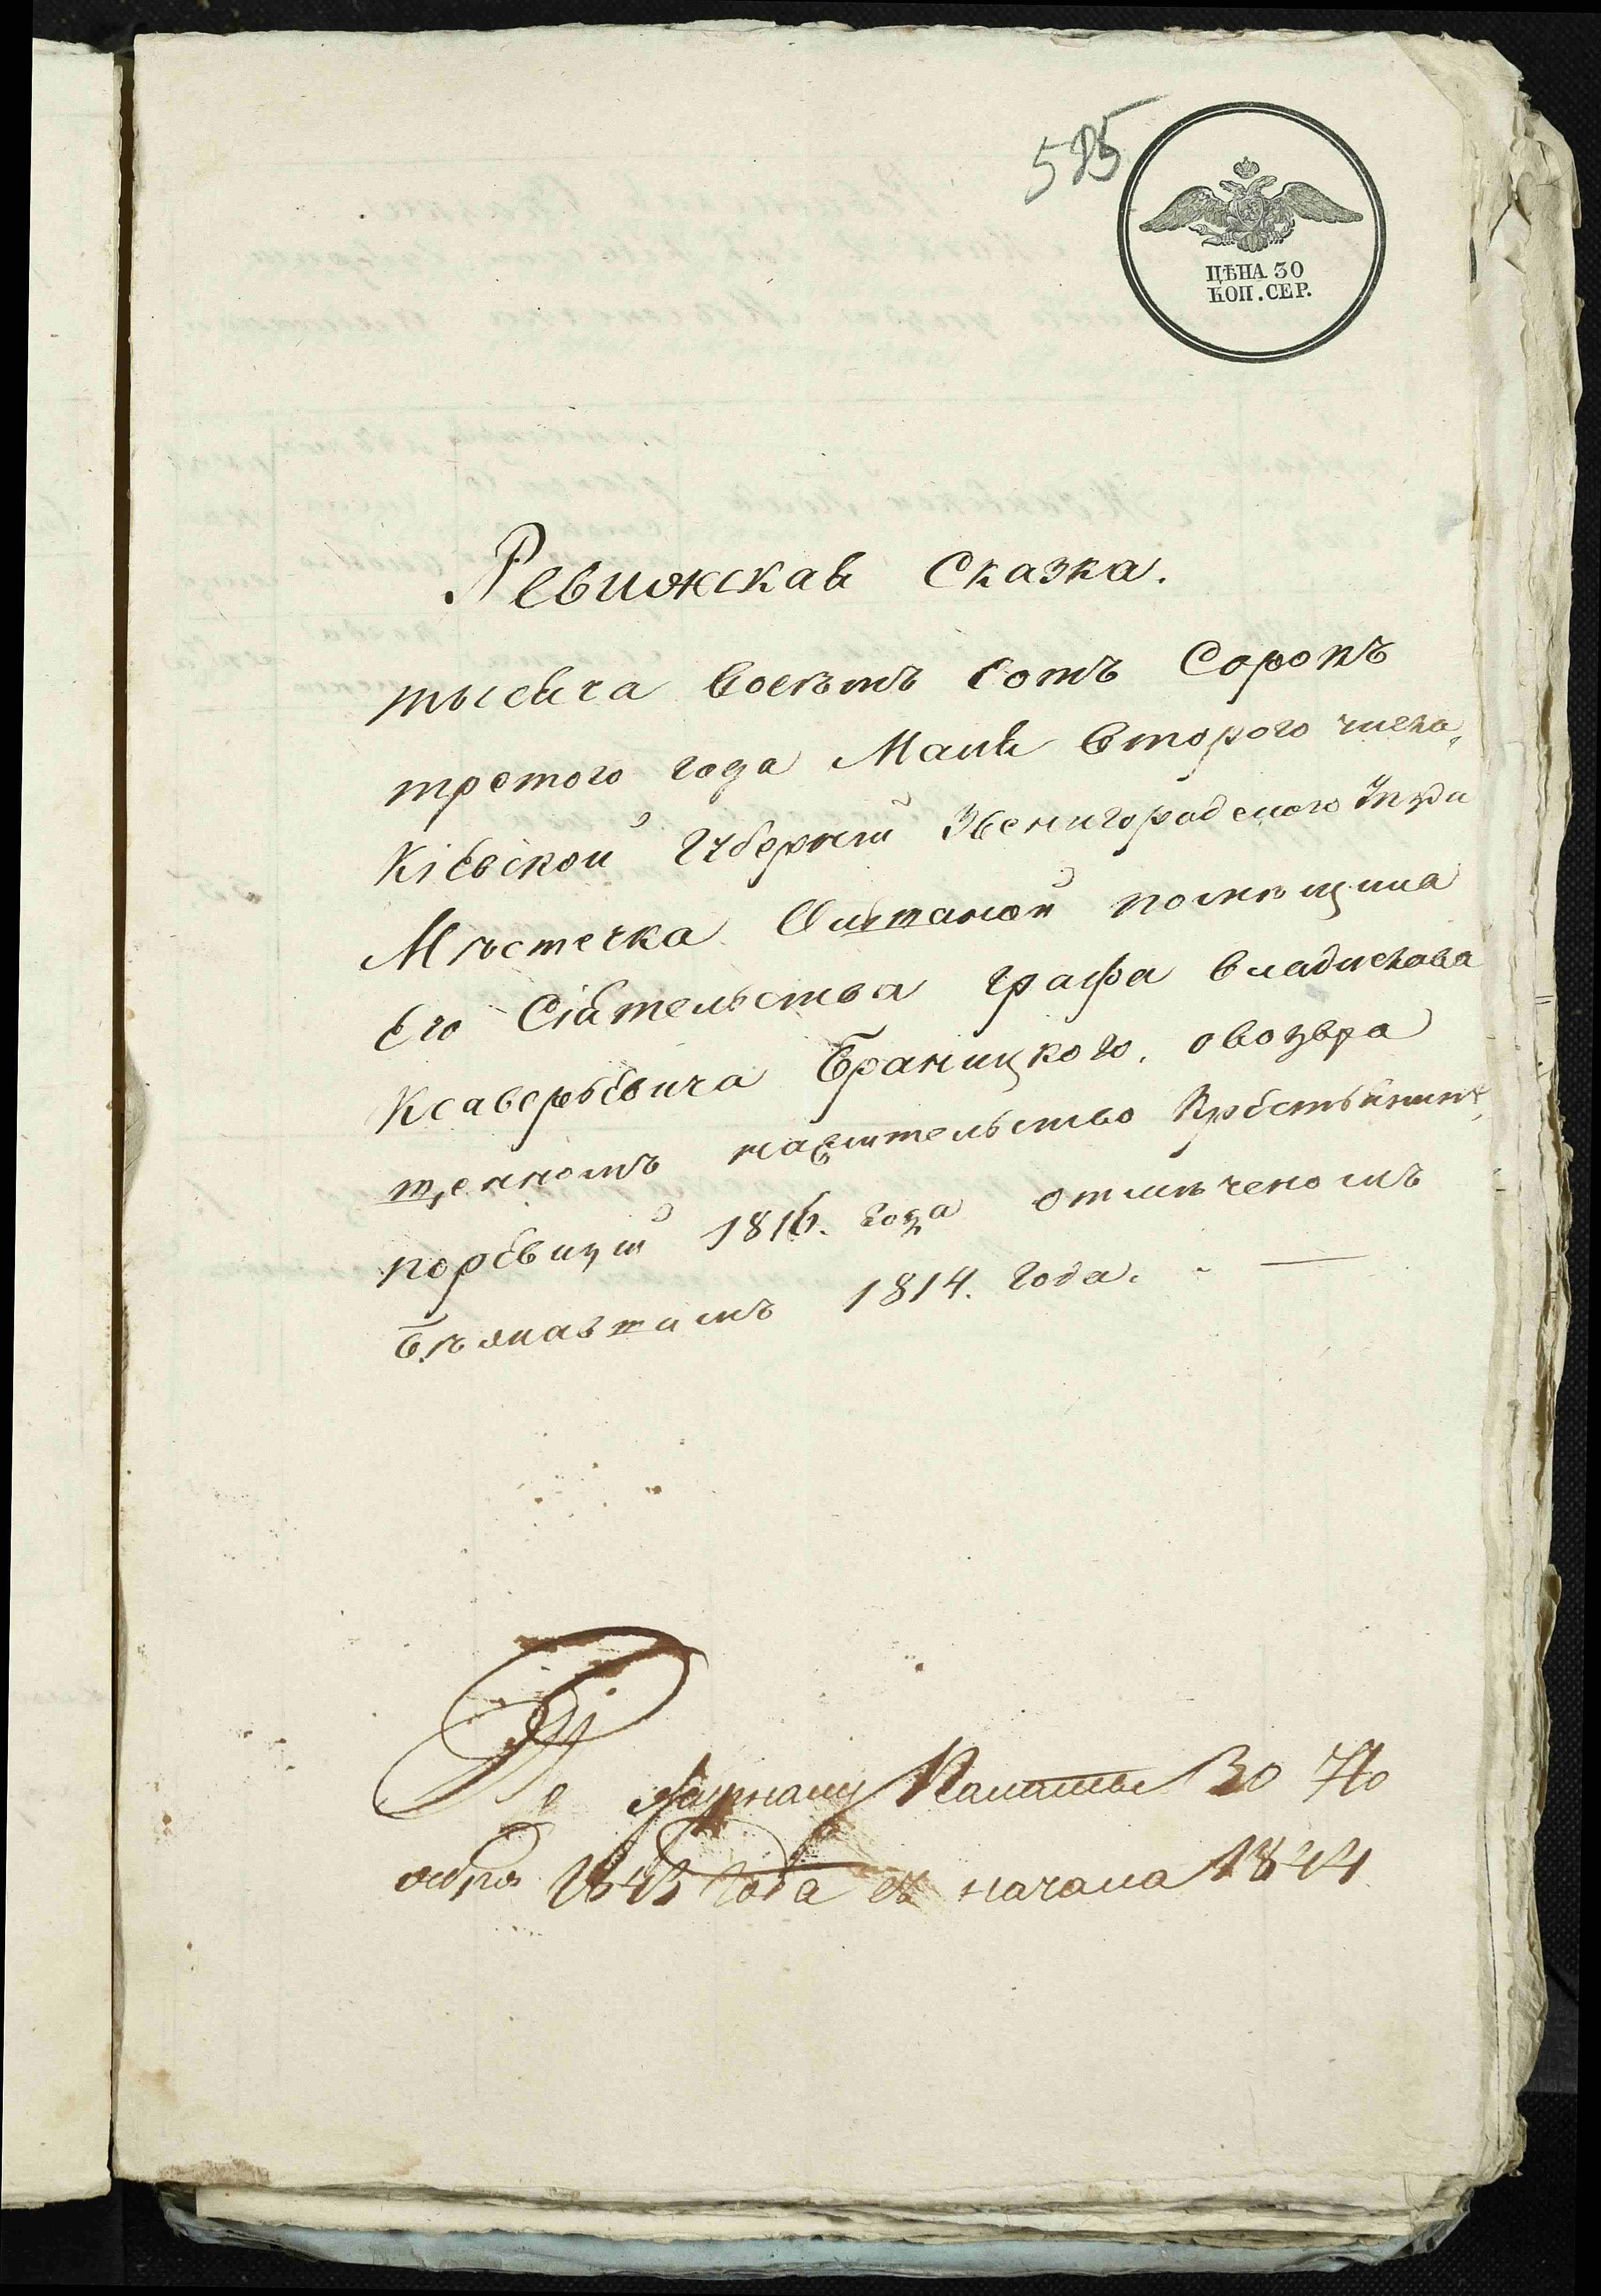 585
ЦѢНА 30
КОП. СЕР.
Ревижская Сказка.
тысяча восѣмъ сотъ Сорокъ
третого года Маия второго числа,
Кіевской Губерніи Звенигородского
Мѣстечка помѣщика
Его Сіятельства Графа Владислава
Ксаверьевича Браницкого, овозвра
щенномъ нажительство
поревизіи 1816. года отмѣченомъ
бѣжавшимъ 1814. года.
По Палаты 30 Но
ября 1843 года съ начала 1844